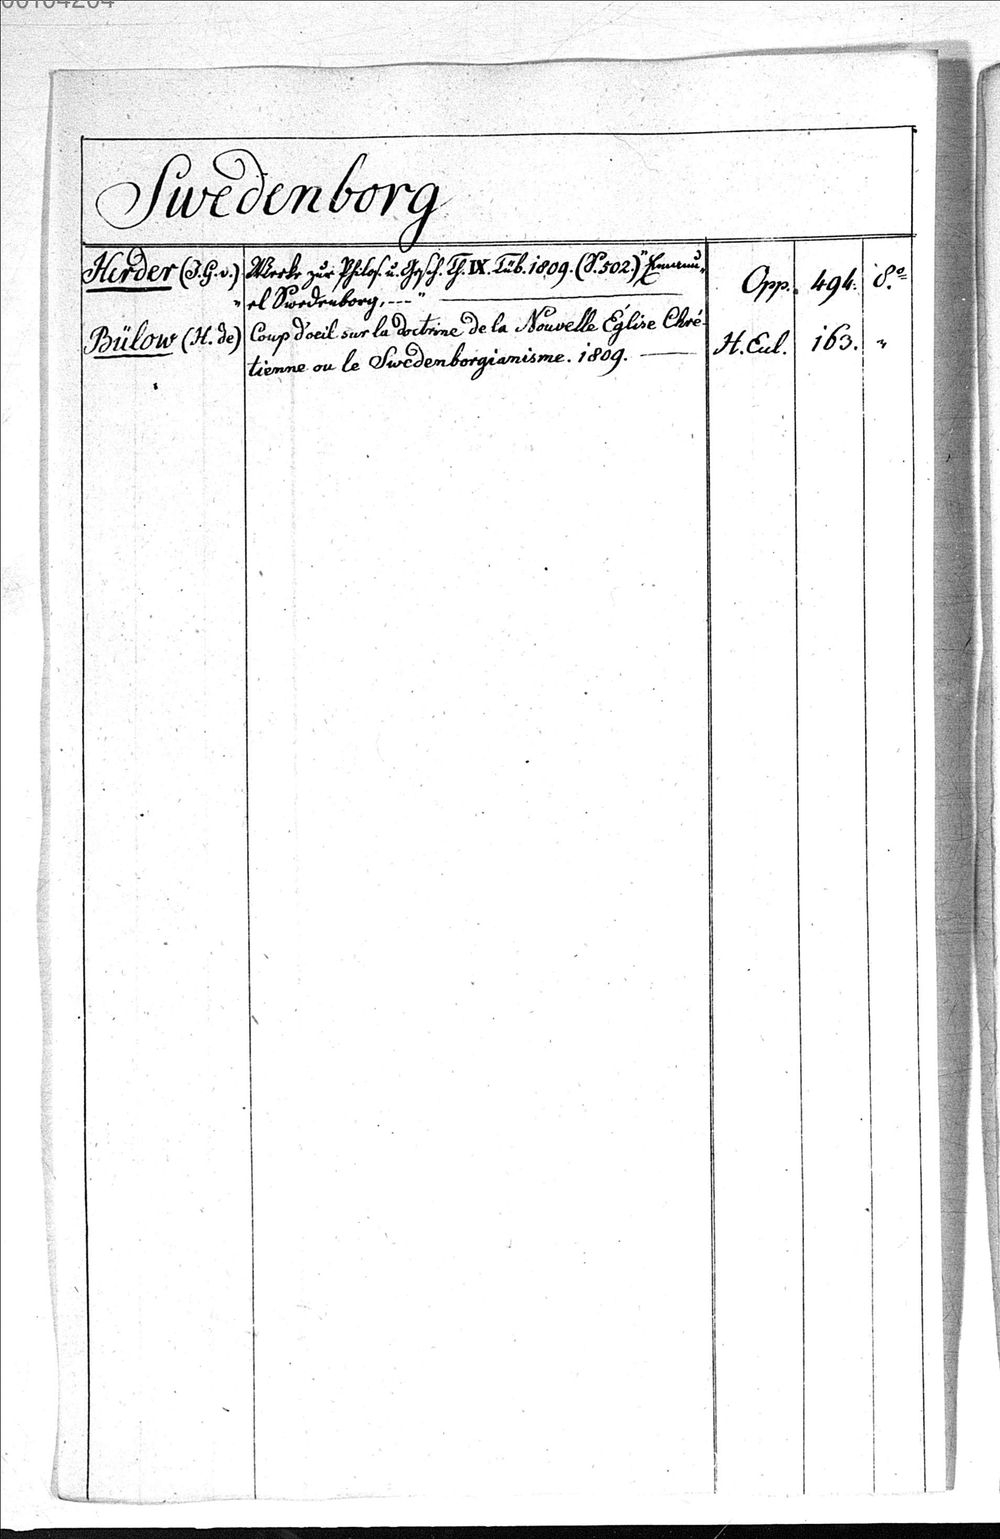 Swedenborg
Herder (J.G.v.) Werke zur Philos. u. Gesch. Th. IX. Tüb. 1809. (S. 502.) "Emanu-
" el Swedenborg, ---" Opp. 494. 8.º
Bülow (H. de) Coup d'oeil sur la doctrine de la Nouvelle Église Chré-
tienne ou le Swedenborgianisme. 1809. H. Eul. 163. "